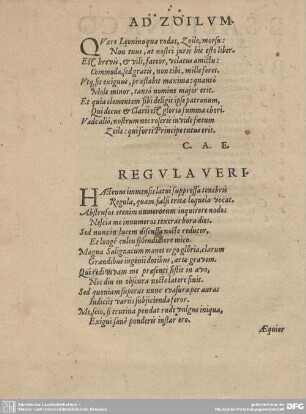 AD ZOILVM.
QVare Leonino quæ rodas, Zoile, morsu:
Non tuus, at nostri juris hic esto liber.
Est brevis, & vilis, fateor, velatus amictu:
Commoda sed gratis, non tibi, mille feret.
Vtq; sit exiguus, præstabit maxima: quantò
Mole minor, tantò nomine major erit.
Et quia clementem sibi delegit ipse patronum,
Qui decus & Clarii est gloria summa chori.
Vade aliò, nostrum nec roseris invide fœtum
Zoile: qui forti Principe tutus erit.
C. A. E.
REGVLA VERI-
HActenus immensis latui suppressa tenebris
Regula, quam falsi trita loquela vocat.
Abstrusos etenim numerorum inquirere nodos
Nescia me innumeros texerat hora dies.
Sed nunc in lucem discussa nocte reducor,
Et longè cultu splendidiore mico.
Magna Salignacum manet ergo gloria, clarum
Grandibus ingenii dotibus, arte gravem.
Qui redivivam me præsenti sistit in ævo,
Nec diu in obscura nocte latere sinit.
Sed quoniam superas nunc evasura per auras
Iudiciis variis subjicienda feror.
Me, scio, si trutina pendat rude vulgus iniqua,
Exigui save ponderis instar ero.
Æquior